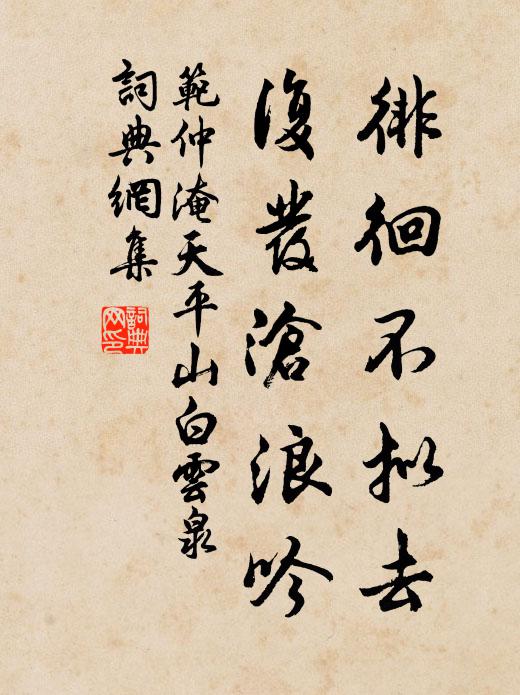 徘徊不拟去
復發滄浪吟
範仲淹天平山白雲泉
詞典網集
詞典网印